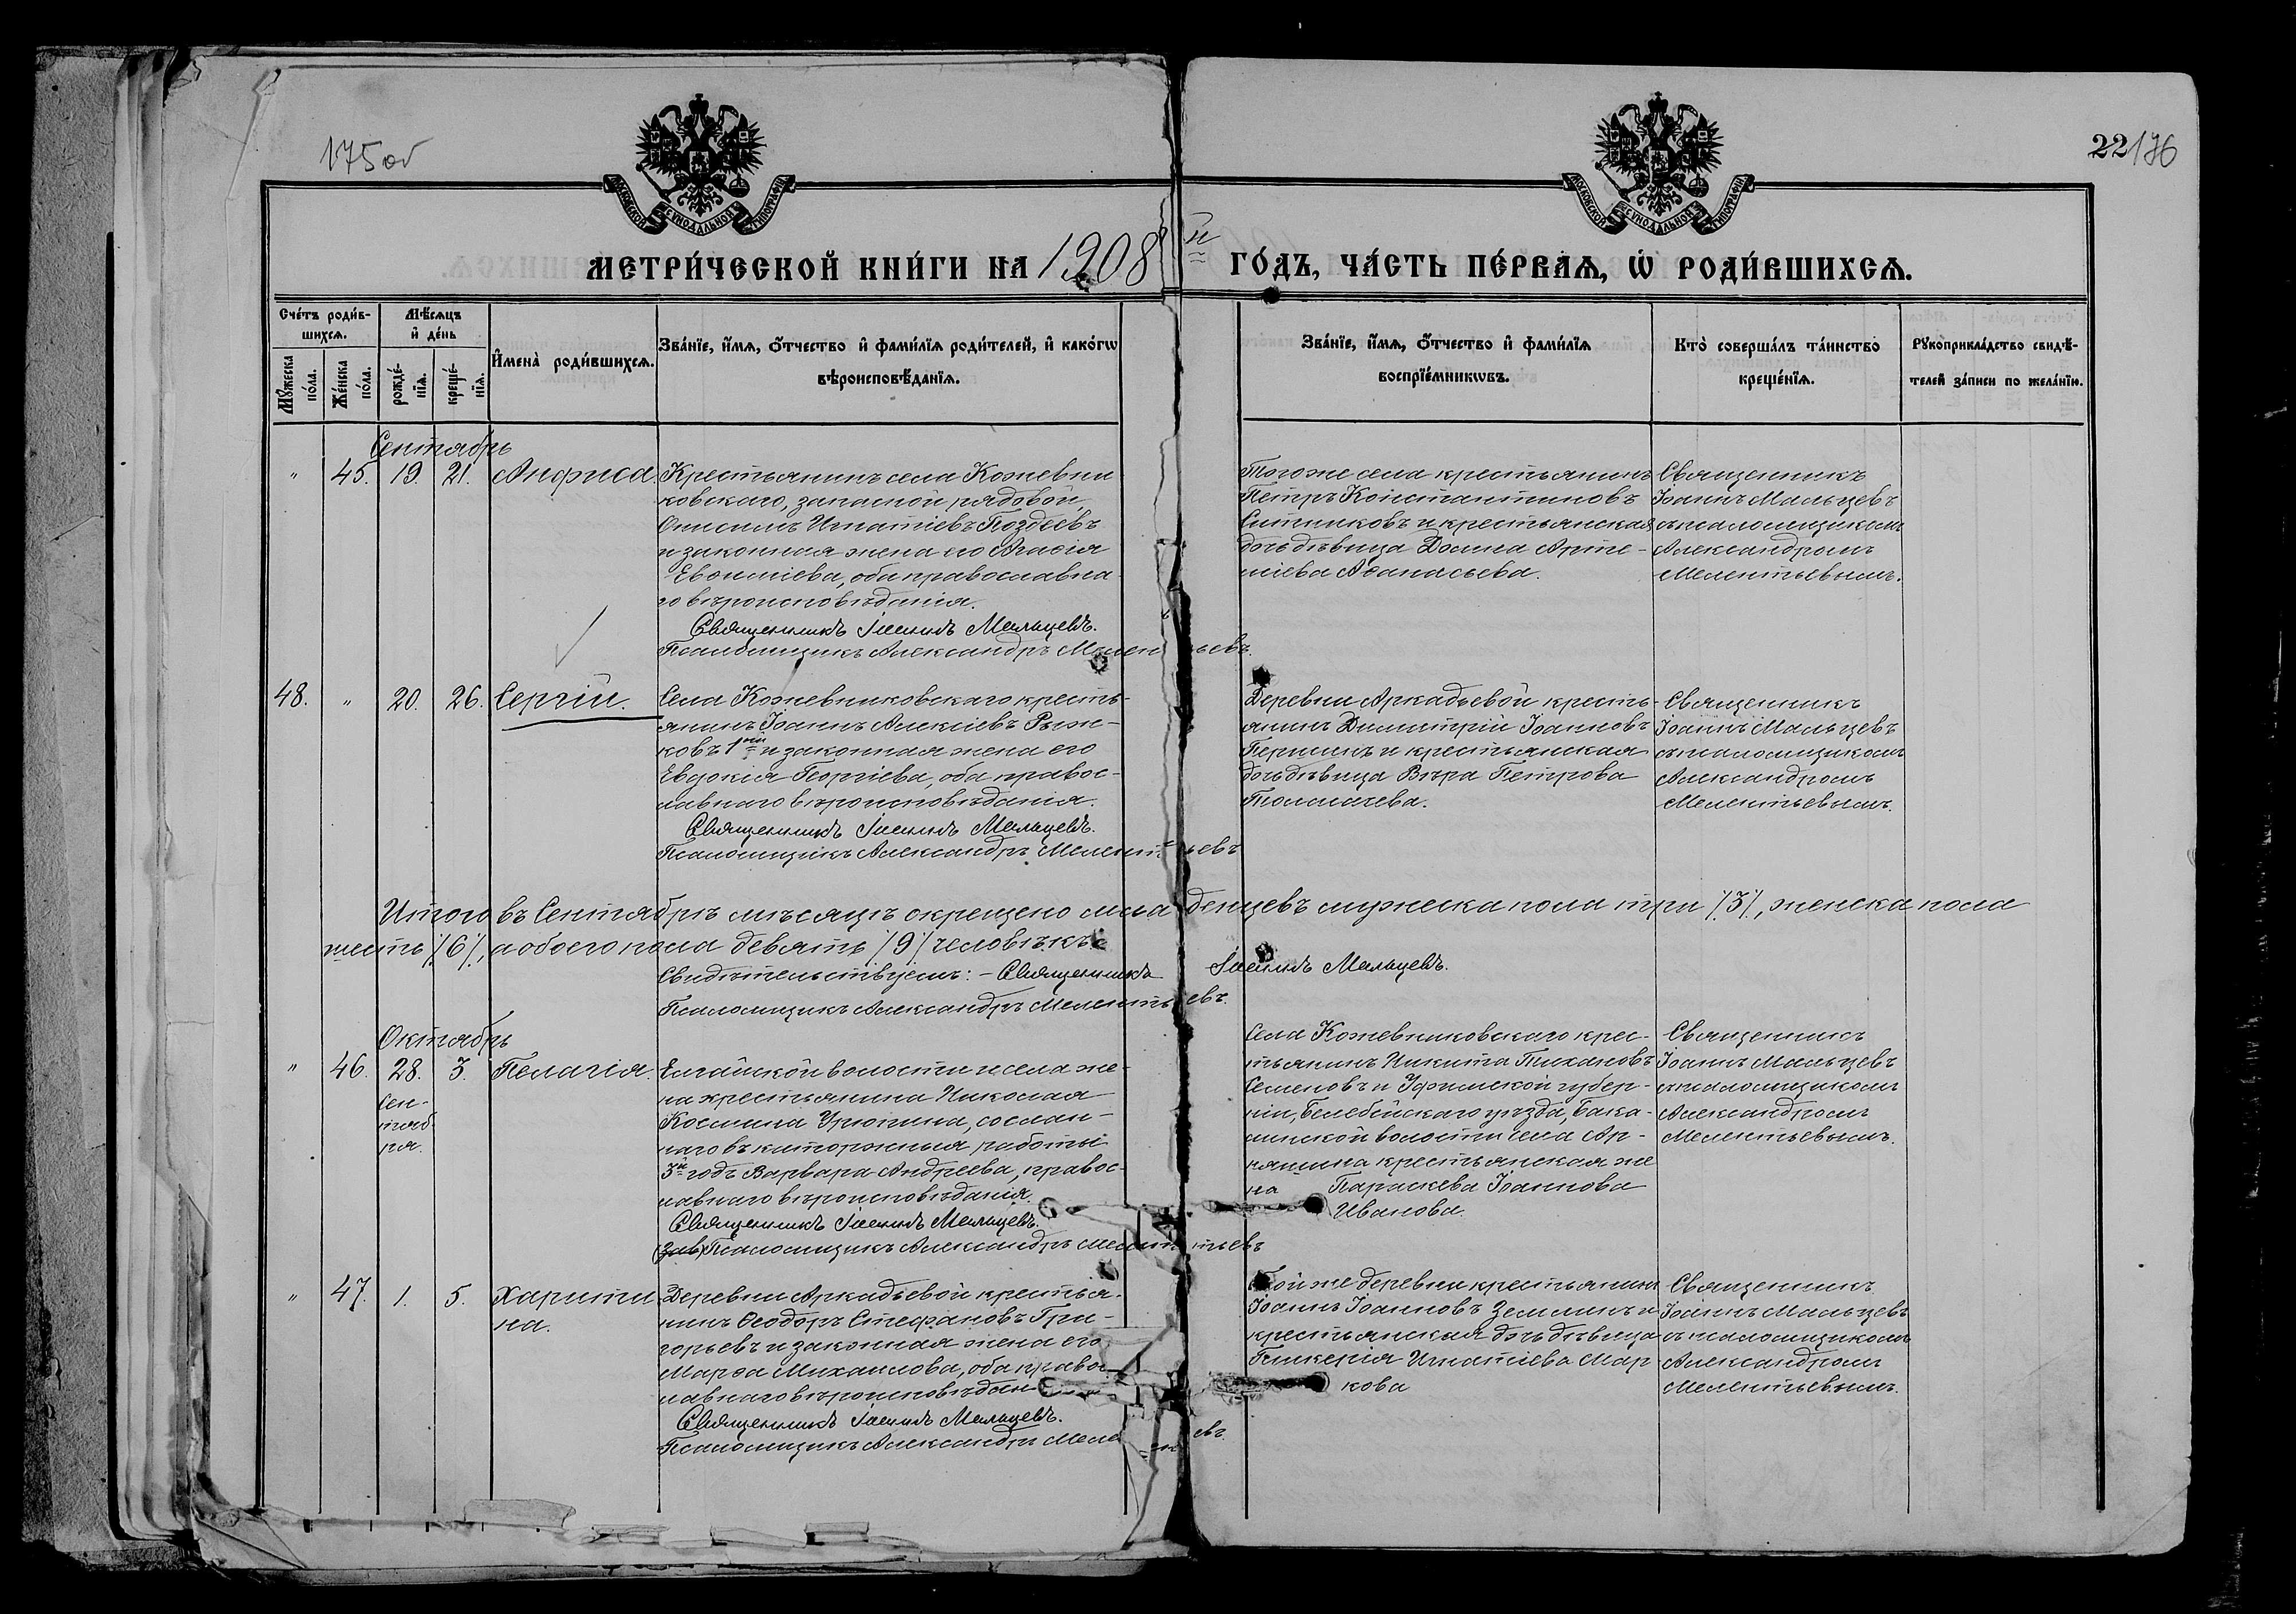 175 об
22 176
МОСКОВСКОЙ СѴНОДАЛЬНОЙ ТИПОГРАФІИ
МОСКОВСКОЙ СѴНОДАЛЬНОЙ ТИПОГРАФІИ
МЕТРИ́ЧЕСКОЙ КНИ́ГИ НА 1908 й ГО́ДЪ, ЧА́СТЬ ПЕ́РВАѦ, Ѡ҆ РОДИ́ВШИХСѦ.
Сче́тъ роди́в-
шихсѧ.
Мꙋ́жеска
по́ла.
Же́нска
по́ла.
Мѣ́сѧцъ
и҆ де́нь
рожде́-
нїѧ.
креще́-
нїѧ.
И҆мена̀ роди́вшихсѧ.
Зва́нїе, и҆́мѧ, ѻ҆́тчество и҆ фами́лїѧ роди́телей, и҆ како́гѡ
вѣроисповѣ́данїѧ.
Зва́нїе, и҆́мѧ, ѻ҆́тчество и҆ фами́лїѧ
воспрїе́мникѡвъ.
Кто̀ соверша́лъ та́инство
креще́нїѧ.
Рꙋкоприкла́дство свидѣ́-
телей за́писи по жела́нїю.
Сентябрь
" 45. 19. 21. Анфиса.
Крестьянинъ села Кожевни
ковскаго, запасной рядовой,
Онисимъ Игнатіевъ Поздѣевъ
и законная жена его Агафія
Евфиміева, оба православна-
го вѣроисповѣданія.
Священникъ Іоаннъ Мальцевъ.
Псаломщикъ Александръ Мелентьевъ.
Тогоже села крестьянинъ
Петръ Константиновъ
Ситниковъ и крестьянская
дочь дѣвица Домна Арте-
міева Афанасьева.
Священникъ
Іоаннъ Мальцевъ
съ псаломщикомъ
Александромъ
Мелентьевымъ.
48. " 20. 26. Сергій.
Села Кожевниковскаго кресть-
янинъ Іоаннъ Алексіевъ Рыж-
ковъ 1й и законная жена его
Евдокія Георгіева, оба правос-
лавнаго вѣроисповѣданія.
Священникъ Іоаннъ Мальцевъ.
Псаломщикъ Александръ Мелентьевъ
Деревни Аркадьевой кресть-
янинъ Димитрій Іоанновъ
Першинъ и крестьянская
дочь дѣвица Вѣра Петрова
Толмачева.
Священникъ
Іоаннъ Мальцевъ
съ псаломщикомъ
Александромъ
Мелентьевымъ.
Итого въ Сентябрѣ мѣсяцѣ окрещено младенцевъ мужеска пола три /3/, женска пола
шесть /6/, а обоего пола девять /9/ человѣкъ
Свидѣтельствуемъ: – Священникъ Іоаннъ Мальцевъ.
Псаломщикъ Александръ Мелентьевъ.
Октябрь
" 46. 28. 3. Пелагія.
Сен-
тяб-
ря.
Елгайской волости и села же-
на крестьянина Николая
Космина Урюпина, сослан-
наго въ каторжныя работы
3й годъ Варвара Андреева, правос-
лавнаго вѣроисповѣданія.
Священникъ Іоаннъ Мальцевъ.
Псаломщикъ Александръ Мелентьевъ
Села Кожевниковскаго крес-
тьянинъ Никита Тихановъ
Семеновъ и Уфимской губер-
ніи, Белебейскаго уѣзда, Бака-
линской волости села
крестьянская же
на Параскева Іоаннова
Иванова.
Священникъ
Іоаннъ Мальцевъ
съ псаломщикомъ
Александромъ
Мелентьевымъ.
" 47. 1. 5. Харити
на.
Деревни Аркадьевой крестья-
нинъ Ѳеодоръ Стефановъ Гри-
горьевъ и законная жена его
Марѳа Михаилова, оба правос-
лавнаго вѣроисповѣдан
Священникъ Іоаннъ Мальцевъ.
Псаломщикъ Александръ Меле евъ.
Той же деревни крестьянинъ
Іоаннъ Іоанновъ Земминъ и
крестьянская дочь дѣвица
Гликерія Игнатіева Мар
кова
Священникъ
Іоаннъ Мальцевъ
съ псаломщикомъ
Александромъ
Мелентьевымъ.